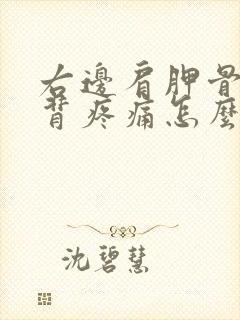 右邊肩胛骨
背疼痛怎麼
沈碧慧